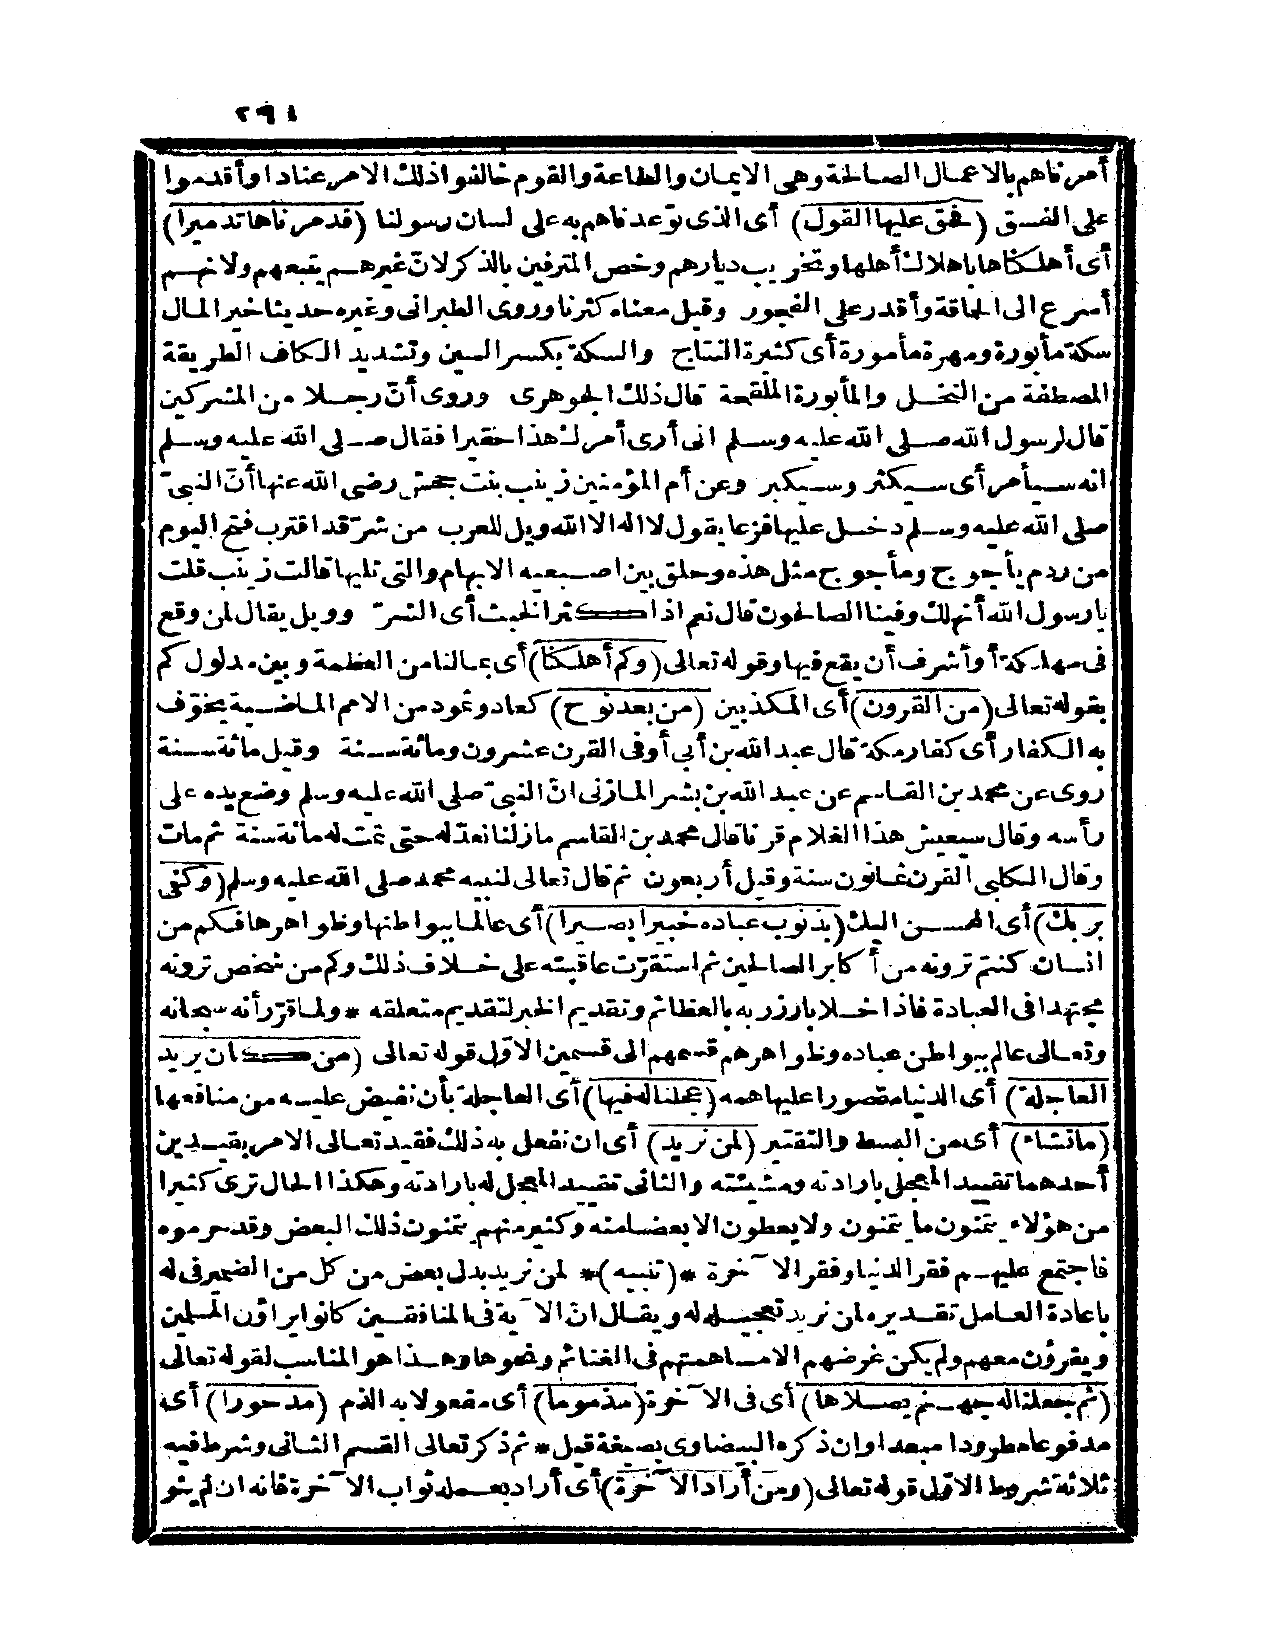 ٢٩١
أمرناهم بالاعمال الصالحة وهى الايمان والطاعة والقوم خالفوا ذلك الامر عنادا وأقدموا
على الفسق (فحق عليها القول) أى الذى توعدناهم به على لسان رسولنا (فدمرناها تدميرا)
أى أهلكناها باهلاك أهلها وتخريب ديارهم وخص المترفين بالذكر لانّ غيرهم يتبعهم ولانهم
أسرع الى الحماقة وأقدر على الفجور وقيل معناه كثرنا وروى الطبرانى وغيره حديثا خير المال
سكة مأبورة ومهرة مأمورة أى كثيرة النتاج والسكة بكسر السين وتشديد الكاف الطريقة
المصطفة من النخل والمأبورة الملقحة قال ذلك الجوهرى وروى أنّ رجلا من المشركين
قال لرسول الله صلى الله عليه وسلم انى أرى أمرك هذا حقيرا فقال صلى الله عليه وسلم
انه سيأمر أى سيكثر وسيكبر وعن أم المؤمنين زينب بنت جحش رضى الله عنها أنّ النبىّ
صلى الله عليه وسلم دخل عليها فزعا يقول لا اله الا الله ويل للعرب من شرّ قد اقترب فتح اليوم
من ردم يأجوج ومأجوج مثل هذه وحلق بين اصبعيه الابهام والتى تليها قالت زينب قلت
يا رسول الله أنهلك وفينا الصالحون قال نعم اذا كثر الخبث أى الشرّ وويل يقال لمن وقع
فى مهلكة أو أشرف أن يقع فيها وقوله تعالى (وكم أهلكنا) أى بمالنا من العظمة وبين مدلول كم
بقوله تعالى (من القرون) أى المكذبين (من بعد نوح) كعاد وثمود من الامم الماضية يخوّف
به الكفار أى كفار مكة قال عبد الله بن أبى أوفى القرن عشرون ومائة سنة وقيل مائة سنة
روى عن محمد بن القاسم عن عبد الله بن بشر المازنى انّ النبىّ صلى الله عليه وسلم وضع يده على
رأسه وقال سيعيش هذا الغلام قرنا قال محمد بن القاسم مازلنا نعدّ له حتى تمت له مائة سنة ثم مات
وقال الكلبى القرن ثمانون سنة وقيل أربعون ثم قال تعالى لنبيه محمد صلى الله عليه وسلم (وكفى
بربك) أى المحسن اليك (بذنوب عباده خبيرا بصيرا) أى عالما ببواطنها وظواهرها فكم من
انسان كنتم ترونه من أكابر الصالحين ثم استقرّت عاقبته على خلاف ذلك وكم من شخص ترونه
مجتهدا فى العبادة فاذا خلا بارز ربه بالعظائم وتقديم الخبر لتقديم متعلقه * ولما قرّر أنه سبحانه
وتعالى عالم ببواطن عباده وظواهرهم قسمهم الى قسمين الاوّل قوله تعالى (من كان يريد
العاجلة) أى الدنيا مقصورا عليها همه (عجلنا له فيها) أى العاجلة بأن نفيض عليه من منافعها
(مانشاء) أى من البسط والتقتير (لمن نريد) أى ان نفعل به ذلك فقيد تعالى الامر بقيدين
أحدهما تقييد المعجل بارادته ومشيئته والثانى تقييد المعجل له بارادته وهكذا الحال ترى كثيرا
من هؤلاء يتمنون ما يتمنون ولا يعطون الا بعضا منه وكثير منهم يتمنون ذلك البعض وقد حرموه
فاجتمع عليهم فقر الدنيا وفقر الآخرة *(تنبيه)* لمن نريد بدل بعض من كل من الضمير فى له
باعادة العامل تقديره لمن نريد تعجيله له ويقال انّ الآية فى المنافقين كانوا يراؤن المسلمين
ويغزون معهم ولم يكن غرضهم الا مساهمتهم فى الغنائم ونحوها وهذا هو المناسب لقوله تعالى
(ثم جعلنا له جهنم يصلاها) أى فى الآخرة (مذموما) أى مفعولا به الذم (مدحورا) أى
مدفوعا مطرودا مبعدا وان ذكره البيضاوى بصيغة قيل * ثم ذكر تعالى القسم الثانى وشرط فيه
ثلاثة شروط الاوّل قوله تعالى (ومن أراد الآخرة) أى أراد بعمله ثواب الآخرة فانه ان لم ينو